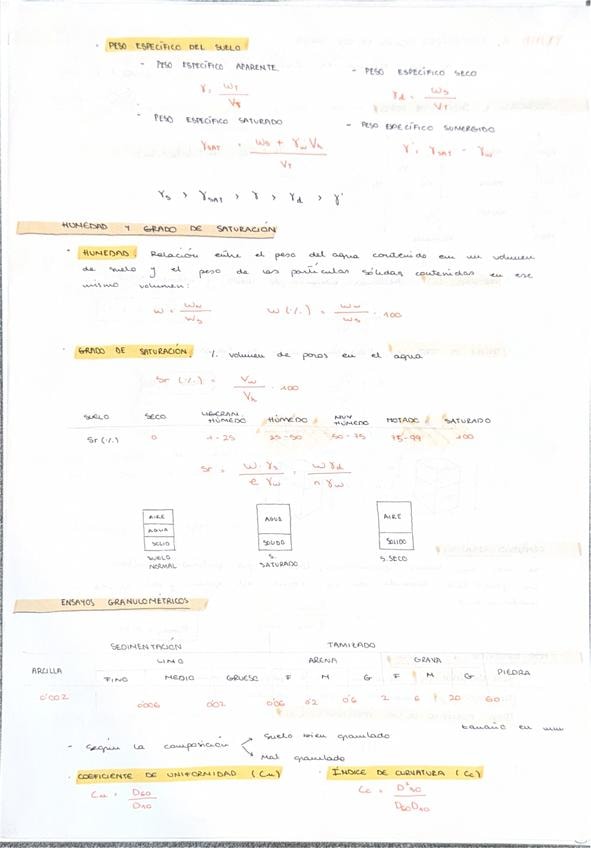 · PESO ESPECÍFICO DEL SUELO
- PESO ESPECÍFICO APARENTE
γ = W_T / V_T
- PESO ESPECÍFICO SECO
γ_d = W_S / V_T
- PESO ESPECÍFICO SATURADO
γ_SAT = W_S + γ_w V_h / V_T
- PESO ESPECÍFICO SUMERGIDO
γ' = γ_SAT - γ_w
γ_S > γ_SAT > γ > γ_d > γ'
HUMEDAD Y GRADO DE SATURACIÓN
· HUMEDAD: Relación entre el peso del agua contenido em un volumen
de suelo y el peso de las partículas sólidas contenidas en ese
mismo volumen:
w = W_w / W_S W (%) = W_w / W_S · 100
· GRADO DE SATURACIÓN: % volumen de poros en el agua
Sr (%) = V_w / V_h · 100
SUELO SECO HÚMEDO MUY HÚMEDO MOJADO SATURADO
Sr (%) 0 1-25 25-50 50-75 75-99 100
Sr = w · γ_S / e γ_w = w γ_d / n γ_w
AIRE
AGUA
SOLID
SUELO
NORMAL
AGUA
SOLIDO
S.
SATURADO
AIRE
SOLIDO
S. SECO
ENSAYOS GRANULOMÉTRICOS
SEDIMENTACIÓN TAMIZADO
ARCILLA LIMO ARENA GRAVA PIEDRA
FINO MEDIO GRUESO F M G F M G
0'002 0'006 0'02 0'06 0'2 0'6 2 6 20 60
tamaño en mm
- según la composición
suelo bien granulado
Mal granulado
· COEFICIENTE DE UNIFORMIDAD (Cu)
Cu = D60 / D10
· ÍNDICE DE CURVATURA (Cc)
Cc = D²30 / D60 D10